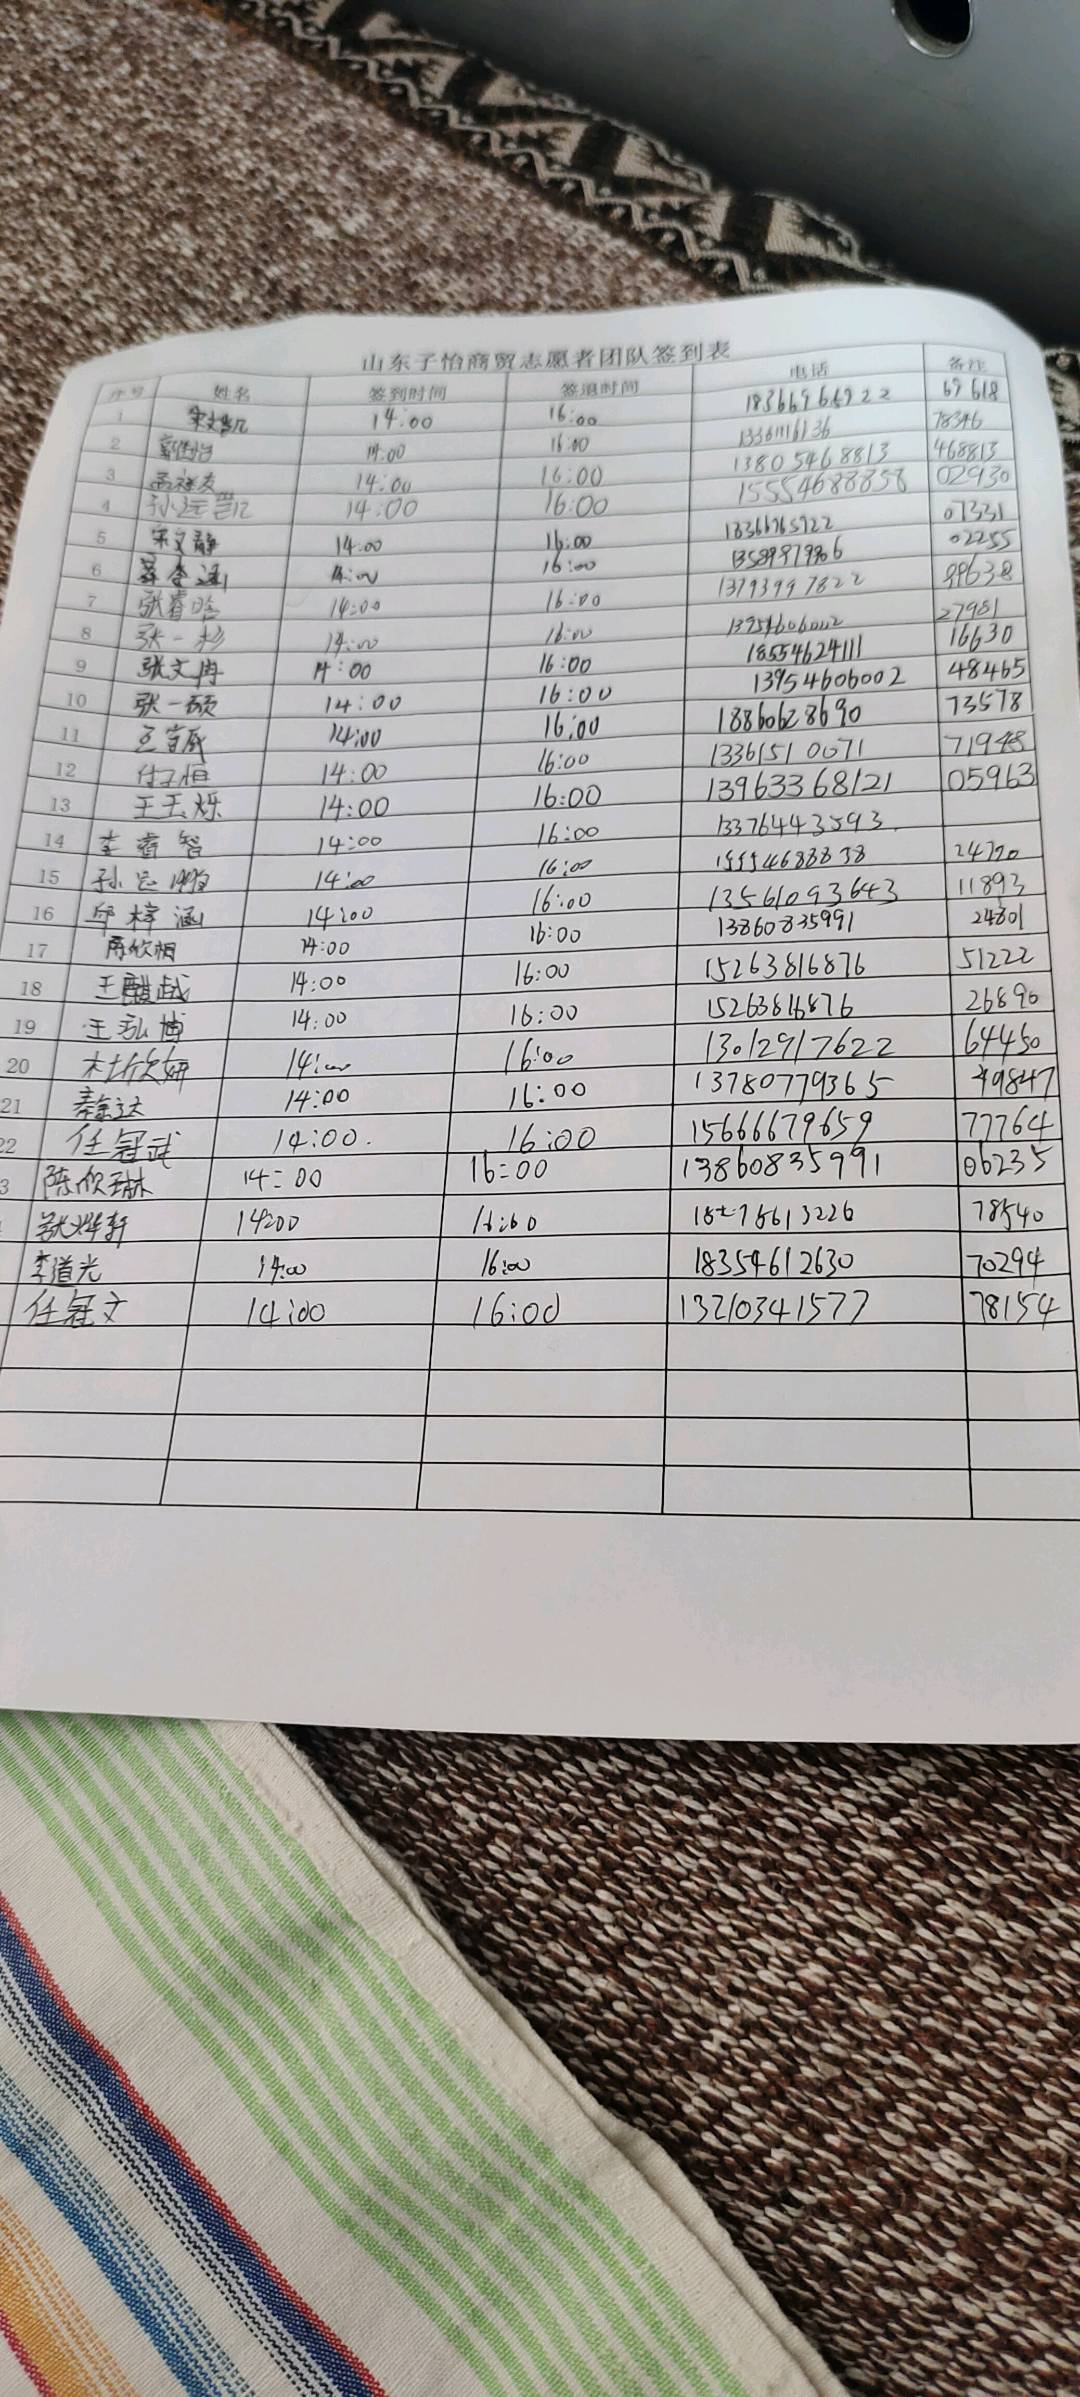 山东子怡商贸志愿者团队签到表
序号 姓名 签到时间 签退时间 电话 备注
1 14:00 16:00 18366966922 69618
2 14:00 16:00 13361116136 78346
3 14:00 16:00 13805468813 468813
4 14:00 16:00 02930
5 宋文静 14:00 16:00 07331
6 14:00 16:00 02255
7 张睿晗 14:00 16:00 13793997822 99638
8 张一杉 14:00 16:00 13954606002 27981
9 张文冉 14:00 16:00 18554624111 16630
10 张一硕 14:00 16:00 13954606002 48465
11 14:00 16:00 18860628690 73578
12 付子恒 14:00 16:00 13361510071 71948
13 王玉烁 14:00 16:00 13963368121 05963
14 李睿智 14:00 16:00 13376443593
15 14:00 16:00 15554688838 24790
16 邱梓涵 14:00 16:00 13561093643 11893
17 14:00 16:00 13860835991 24801
18 王麒越 14:00 16:00 15263816876 51222
19 王弘博 14:00 16:00 15263816876 26890
20 杜欣妍 14:00 16:00 13012917622 64450
21 14:00 16:00 13780779365 49847
22 任冠武 14:00 16:00 15666679659 77764
3 陈欣琳 14:00 16:00 13860835991 06235
14:00 16:00 78540
李道光 14:00 16:00 18354612630 70294
任冠文 14:00 16:00 13210341577 78154